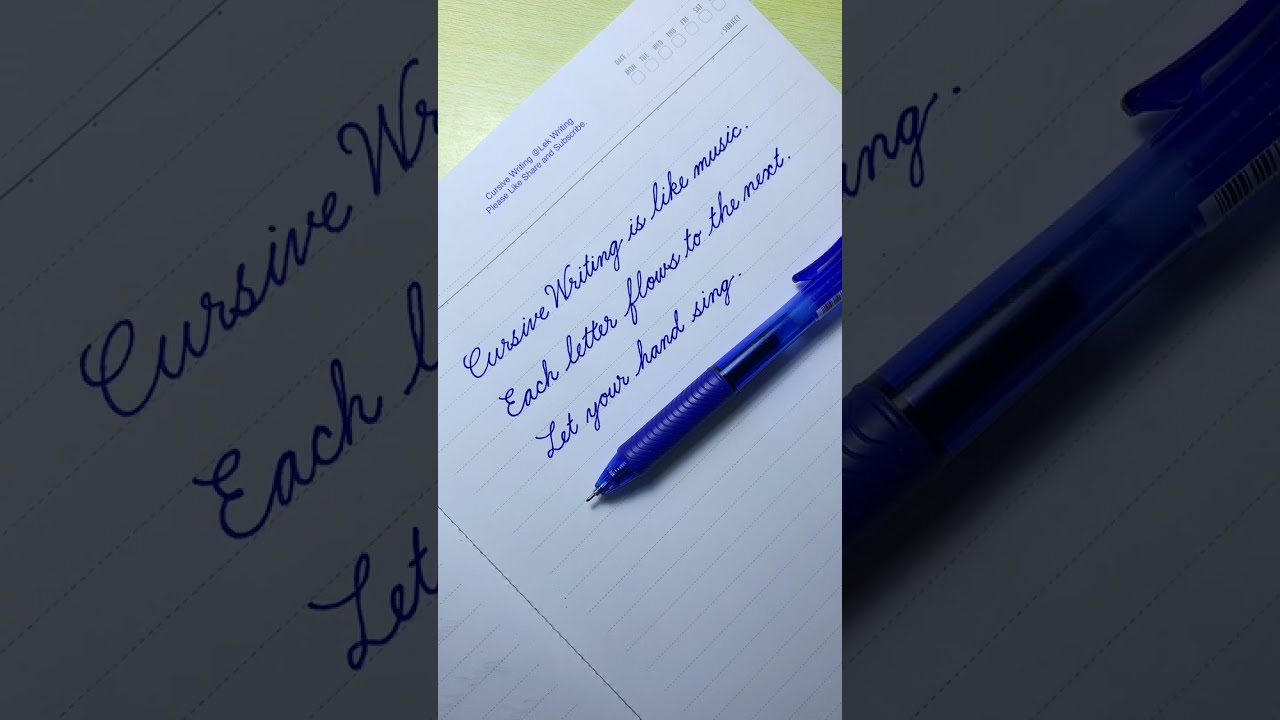 DATE
MON TUE WED THU FRI SAT
SUBJECT
Cursive Writing @Lek Writing
Please Like Share and Subscribe.
Cursive Writing is like music.
Each letter flows to the next.
Let your hand sing.